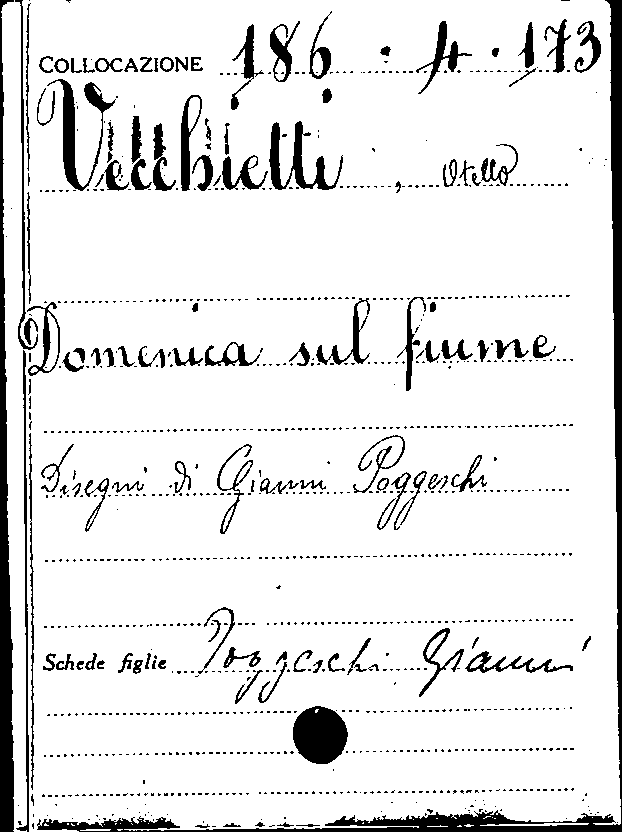 COLLOCAZIONE 186 . 4 . 173
Vecchietti, Otello
Domenica sul fiume
Disegni di Gianni Poggeschi
Schede figlie Poggeschi Gianni